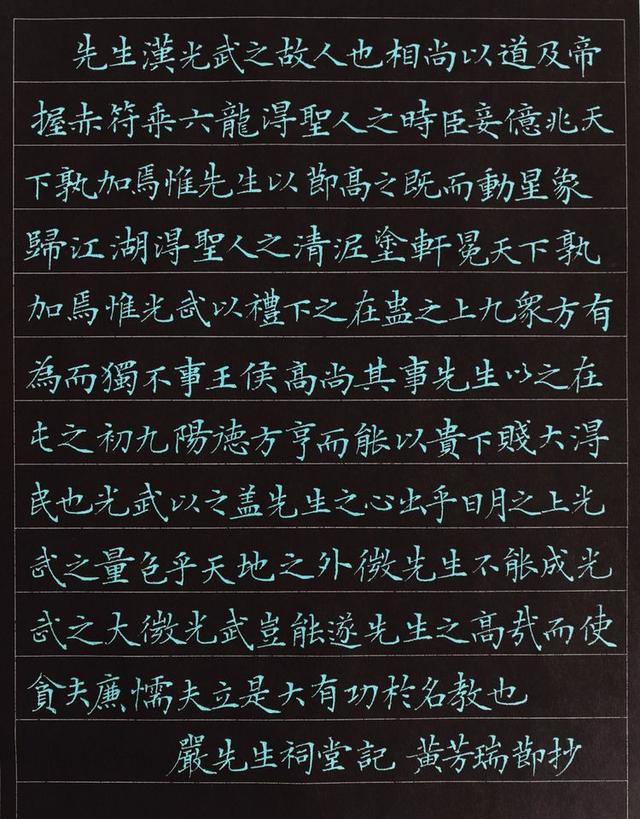 先生漢光武之故人也相尚以道及帝
握赤符乘六龍得聖人之時臣妾億兆天
下孰加焉惟先生以節高之既而動星象
歸江湖得聖人之清泥塗軒冕天下孰
加焉惟光武以禮下之在蠱之上九衆方有
為而獨不事王侯高尚其事先生以之在
屯之初九陽德方亨而能以貴下賤大得
民也光武以之盖先生之心出乎日月之上光
武之量色乎天地之外微先生不能成光
武之大微光武豈能遂先生之高哉而使
貪夫廉懦夫立是大有功於名教也
嚴先生祠堂記 黃芳瑞節抄